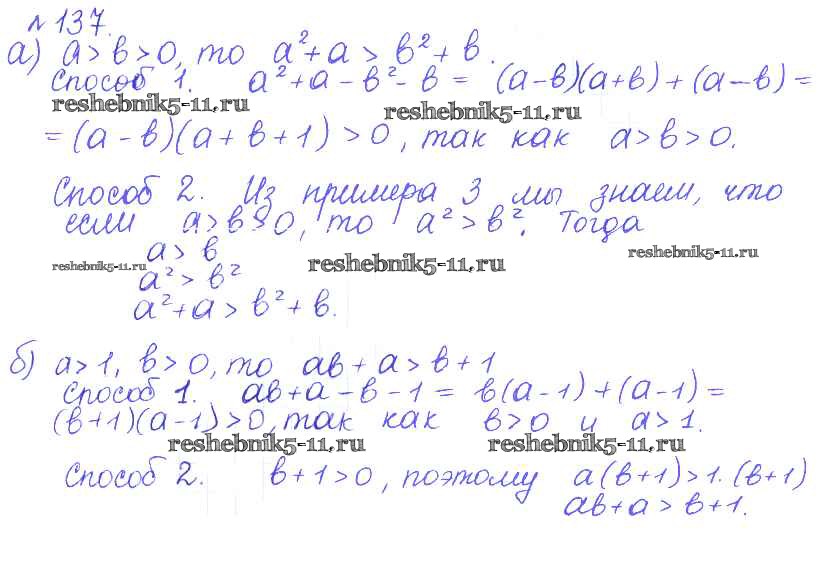 №137.
а) a > b > 0, то a² + a > b² + b.
Способ 1. a² + a - b² - b = (a-b)(a+b) + (a-b) =
reshebnik5-11.ru reshebnik5-11.ru
= (a-b)(a+b+1) > 0, так как a > b > 0.
Способ 2. Из примера 3 мы знаем, что
если a > b > 0, то a² > b². Тогда
a > b
reshebnik5-11.ru reshebnik5-11.ru reshebnik5-11.ru
a² > b²
a² + a > b² + b.
б) a > 1, b > 0, то ab + a > b + 1
Способ 1. ab + a - b - 1 = b(a-1) + (a-1) =
(b+1)(a-1) > 0, так как b > 0 и a > 1.
reshebnik5-11.ru reshebnik5-11.ru
Способ 2. b + 1 > 0, поэтому a(b+1) > 1·(b+1)
ab + a > b + 1.